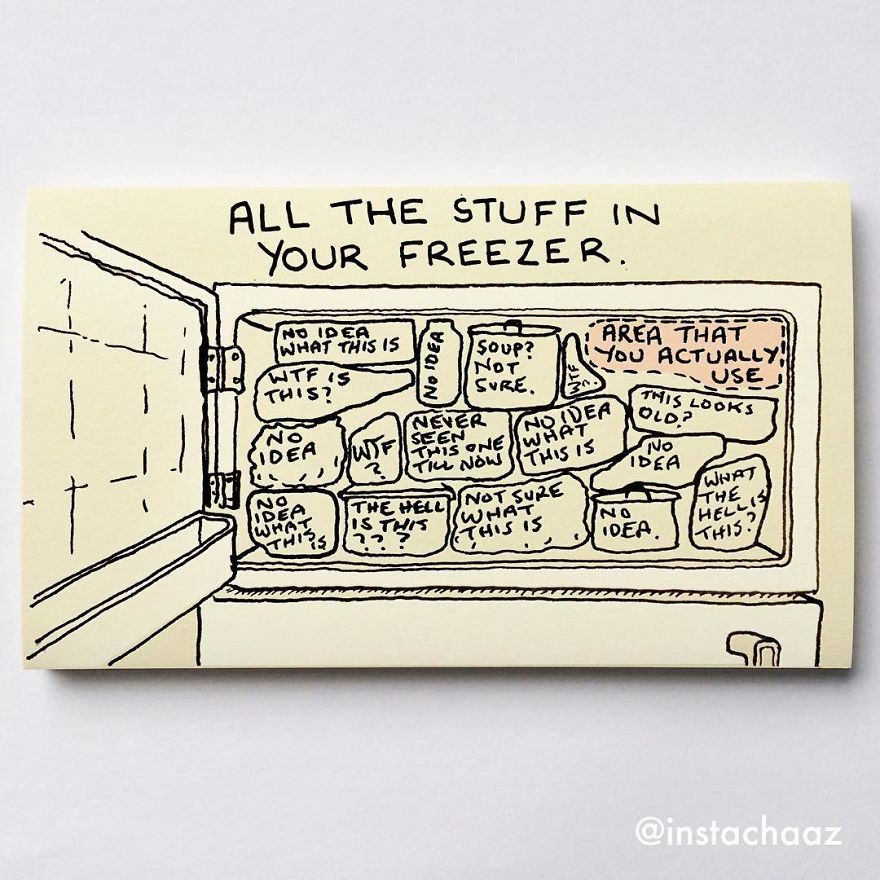 ALL THE STUFF IN
YOUR FREEZER.
NO IDEA
WHAT THIS IS
NO IDEA
SOUP?
NOT
SURE.
WTF
AREA THAT
YOU ACTUALLY
USE
WTF IS
THIS?
THIS LOOKS
OLD?
NO
IDEA
WTF
?
NEVER
SEEN
THIS ONE
TILL NOW
NO IDEA
WHAT
THIS IS
NO
IDEA
WHAT
THE
HELL IS
THIS?
NO
IDEA
WHAT
THIS IS
THE HELL
IS THIS
? ? ?
NOT SURE
WHAT
THIS IS
NO
IDEA.
@instachaaz